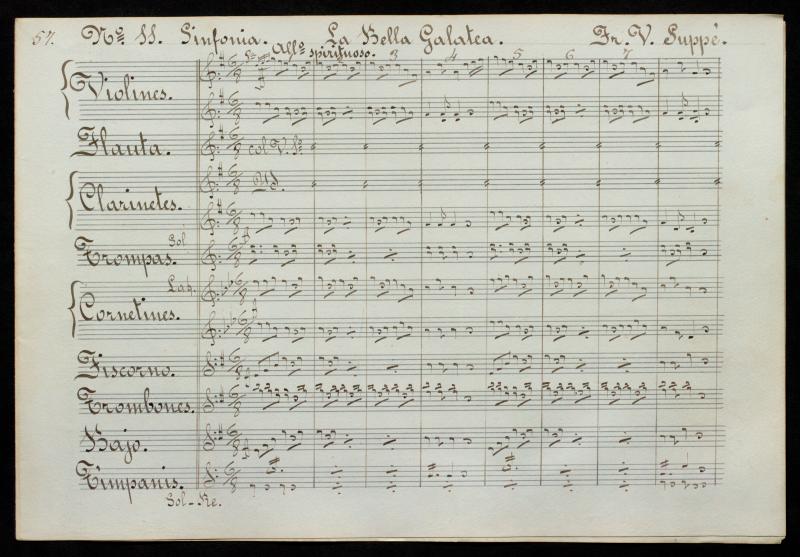 57. Nº 11. Sinfonia. La Bella Galatea. Fr. V. Suppé.
Allº spirituoso. 3 4 5 6 7
Violines.
Flauta. col V. 1º
Clarinetes. Ud.
Sol
Trompas.
La♮.
Cornetines.
Fiscorno.
Trombones.
Bajo.
Timpanis.
Sol-Re.